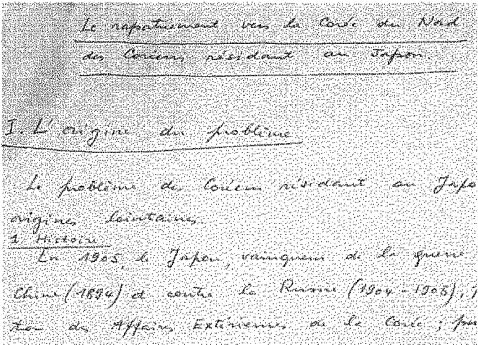 Le rapatriement vers la Corée du Nord
des Coréens résidant au Japon.
I. L'origine du problème
Le problème des Coréens résidant au Japo
origines lointaines.
1 Histoire
En 1905, le Japon, vainqueur de la guerre
Chine (1894) et contre la Russie (1904-1905),
tion des Affaires Extérieures de la Corée ; pui